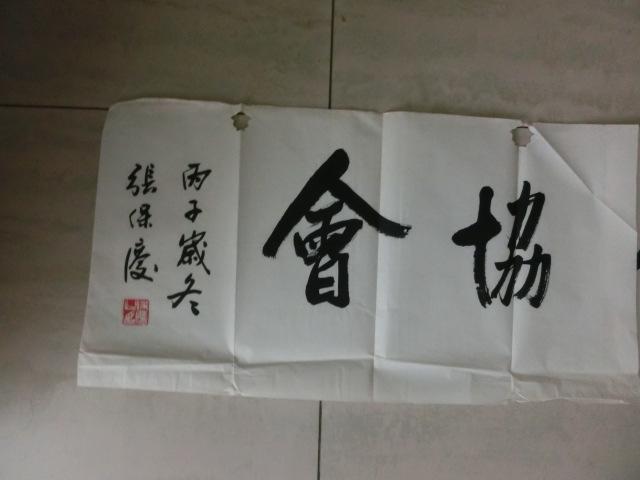 協會
丙子歲冬
張保慶